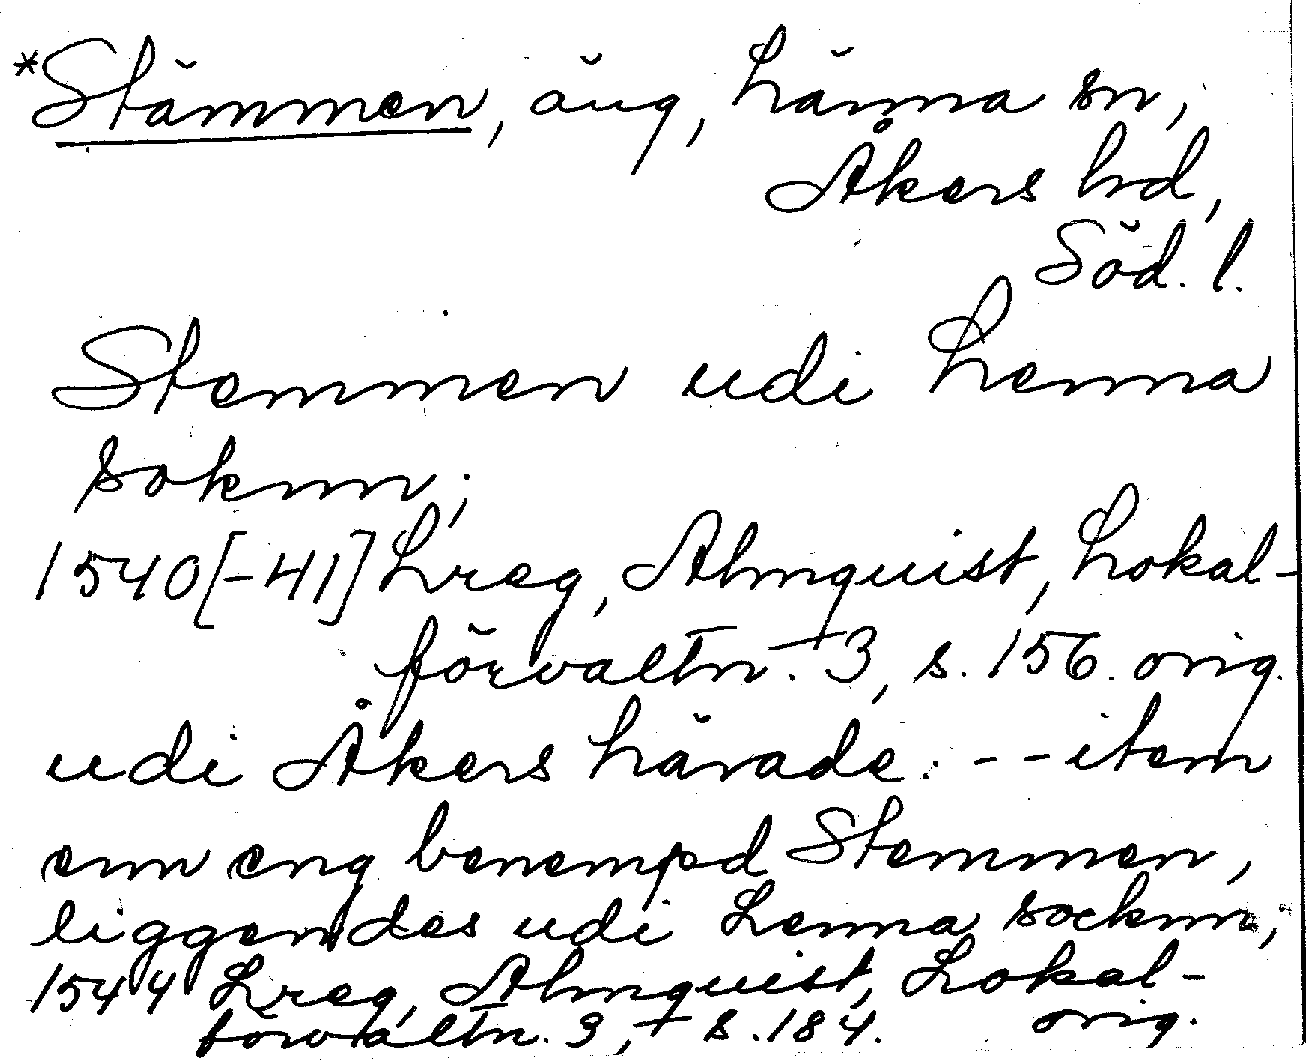 *Stämmen, äng, Länna sn,
Åkers hd,
Söd. l.
Stemmen udi Lenna
soknn;
1540[-41] Lreg, Almquist, Lokal-
förvaltn. 3, s. 156. orig.
udi Åkers härade. -- item
enn eng benempd Stemmen,
liggendes udi Lenna socknn;
1544 Lreg, Almquist, Lokal-
förvaltn. 3, s. 184. orig.